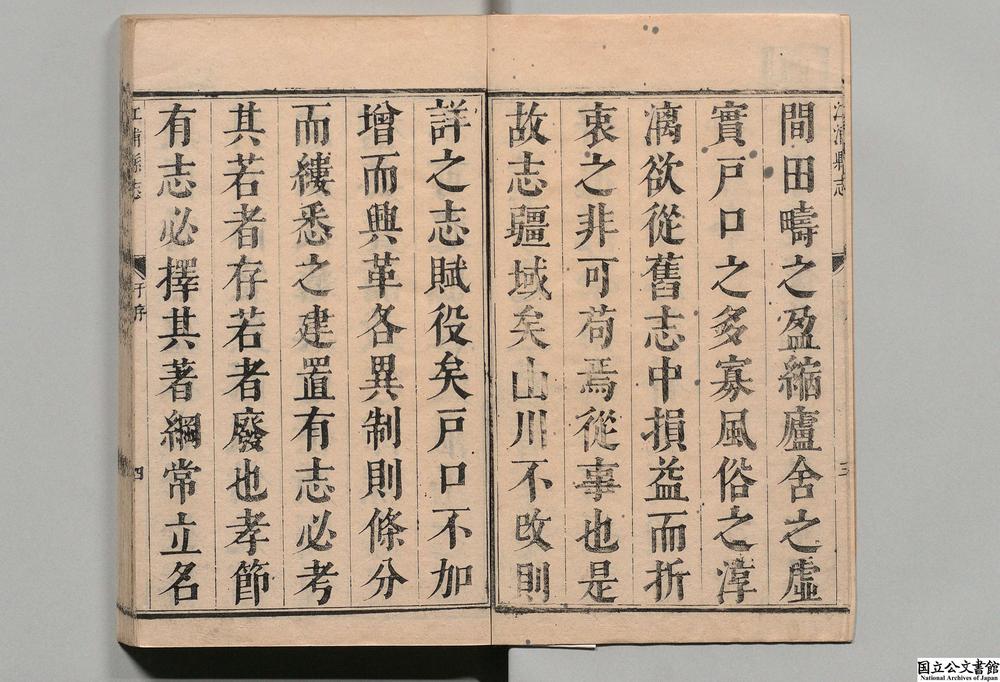 江浦縣志
三
間田疇之盈縮廬舍之虛
實戶口之多寡風俗之淳
漓欲從舊志中損益而折
衷之非可苟焉從事也是
故志疆域矣山川不改則
詳之志賦役矣戶口不加
增而興革各異制則條分
而縷悉之建置有志必考
其若者存若者廢也孝節
有志必擇其著綱常立名
江浦縣志
序
四
国立公文書館
National Archives of Japan